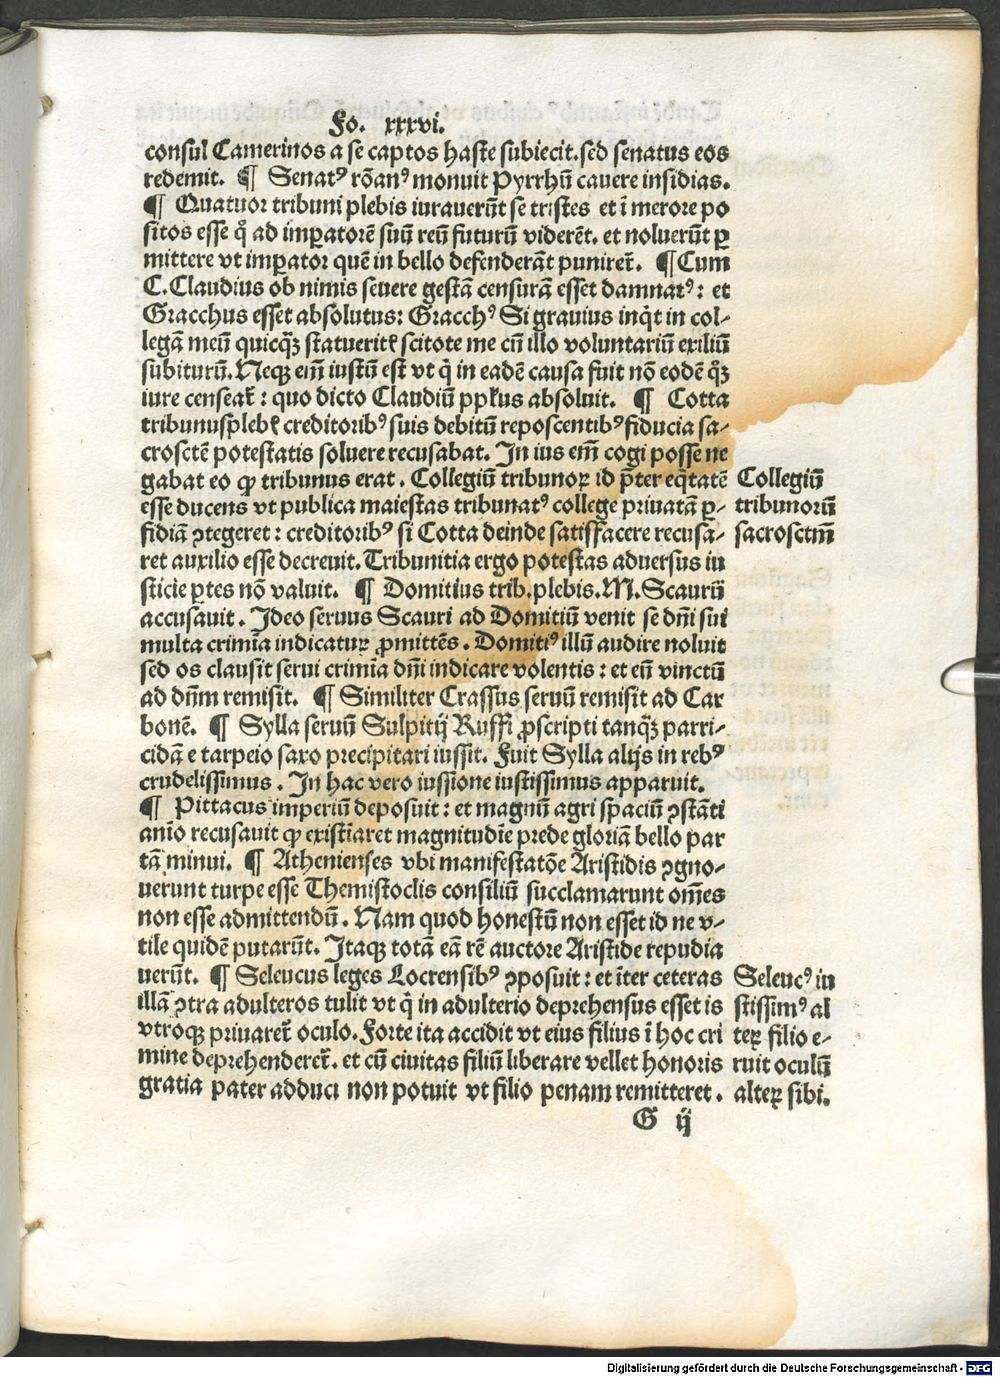 Fo. xxxvi.
consul Camerinos a se captos haste subiecit. sed senatus eos
redemit. ¶ Senatꝰ rōanꝰ monuit Pyrrhū cauere insidias.
¶ Quatuor tribuni plebis iurauerūt se tristes et ī merore po
sitos esse q̊ ad imꝑatorē suū reū futurū viderēt. et noluerūt ꝑ
mittere vt imꝑator quē in bello defenderāt puniret᷑. ¶ Cum
C. Claudius ob nimis seuere gestā censurā esset damnatꝰ: et
Gracchus esset absolutus: Gracchꝰ Si grauius inq̇t in col-
legā meū quicqꝫ statueritꝭ scitote me cū illo voluntariū exiliū
subiturū. Neqꝫ eī̄ iustū est vt q̇ in eadē causa fuit nō eodē qꝫ
iure censeat᷑: quo dicto Claudiū pplꝰus absoluit. ¶ Cotta
tribunusplebꝭ creditoribꝰ suis debitū reposcentibꝰ fiducia sa-
crosctē potestatis soluere recusabat. In ius em̄ cogi posse ne
gabat eo ꝙ tribunus erat. Collegiū tribunoꝝ id p̄ter eq̇tatē
esse ducens vt publica maiestas tribunatꝰ college priuatā ꝑ-
fidiā ꝓtegeret: creditoribꝰ si Cotta deinde satisffacere recusa-
ret auxilio esse decreuit. Tribunitia ergo potestas aduersus iu
sticie ꝑtes nō valuit. ¶ Domitius trib. plebis. M. Scaurū
accusauit. Ideo seruus Scauri ad Domitiū venit se dn̄i sui
multa crimīa indicaturꝝ ꝓmittēs. Domitiꝰ illū audire noluit
sed os clausit serui crimīa dn̄i indicare volentis: et eū vinctū
ad dn̄m remisit. ¶ Similiter Crassus seruū remisit ad Car
bonē. ¶ Sylla seruū Sulpitij Ruffi ꝓscripti tanqꝫ parri-
cidā e tarpeio saxo precipitari iussit. Fuit Sylla alijs in rebꝰ
crudelissimus. In hac vero iussione iustissimus apparuit.
¶ Pittacus imperiū deposuit: et magnū agri spaciū ꝯstāti
anīo recusauit ꝙ existīaret magnitudīe prede gloriā bello par
tā minui. ¶ Athenienses vbi manifestatōe Aristidis ꝯgno-
uerunt turpe esse Themistoclis consiliū succlamarunt om̄es
non esse admittendū. Nam quod honestū non esset id ne v-
tile quidē putarūt. Itaqꝫ totā eā rē auctore Aristide repudia
uerūt. ¶ Seleucus leges Locrensibꝰ ꝯposuit: et īter ceteras
illā ꝯtra adulteros tulit vt q̇ in adulterio deprehensus esset is
vtroqꝫ priuaret᷑ oculo. Forte ita accidit vt eius filius ī hoc cri
mine deprehenderet᷑. et cū ciuitas filiū liberare vellet honoris
gratia pater adduci non potuit vt filio penam remitteret.
Collegiū
tribunorū
sacrosctm̄
Seleucꝰ iu
stissimꝰ al
teꝝ filio e-
ruit oculū
alteꝝ sibi.
G ij
Digitalisierung gefördert durch die Deutsche Forschungsgemeinschaft - DFG